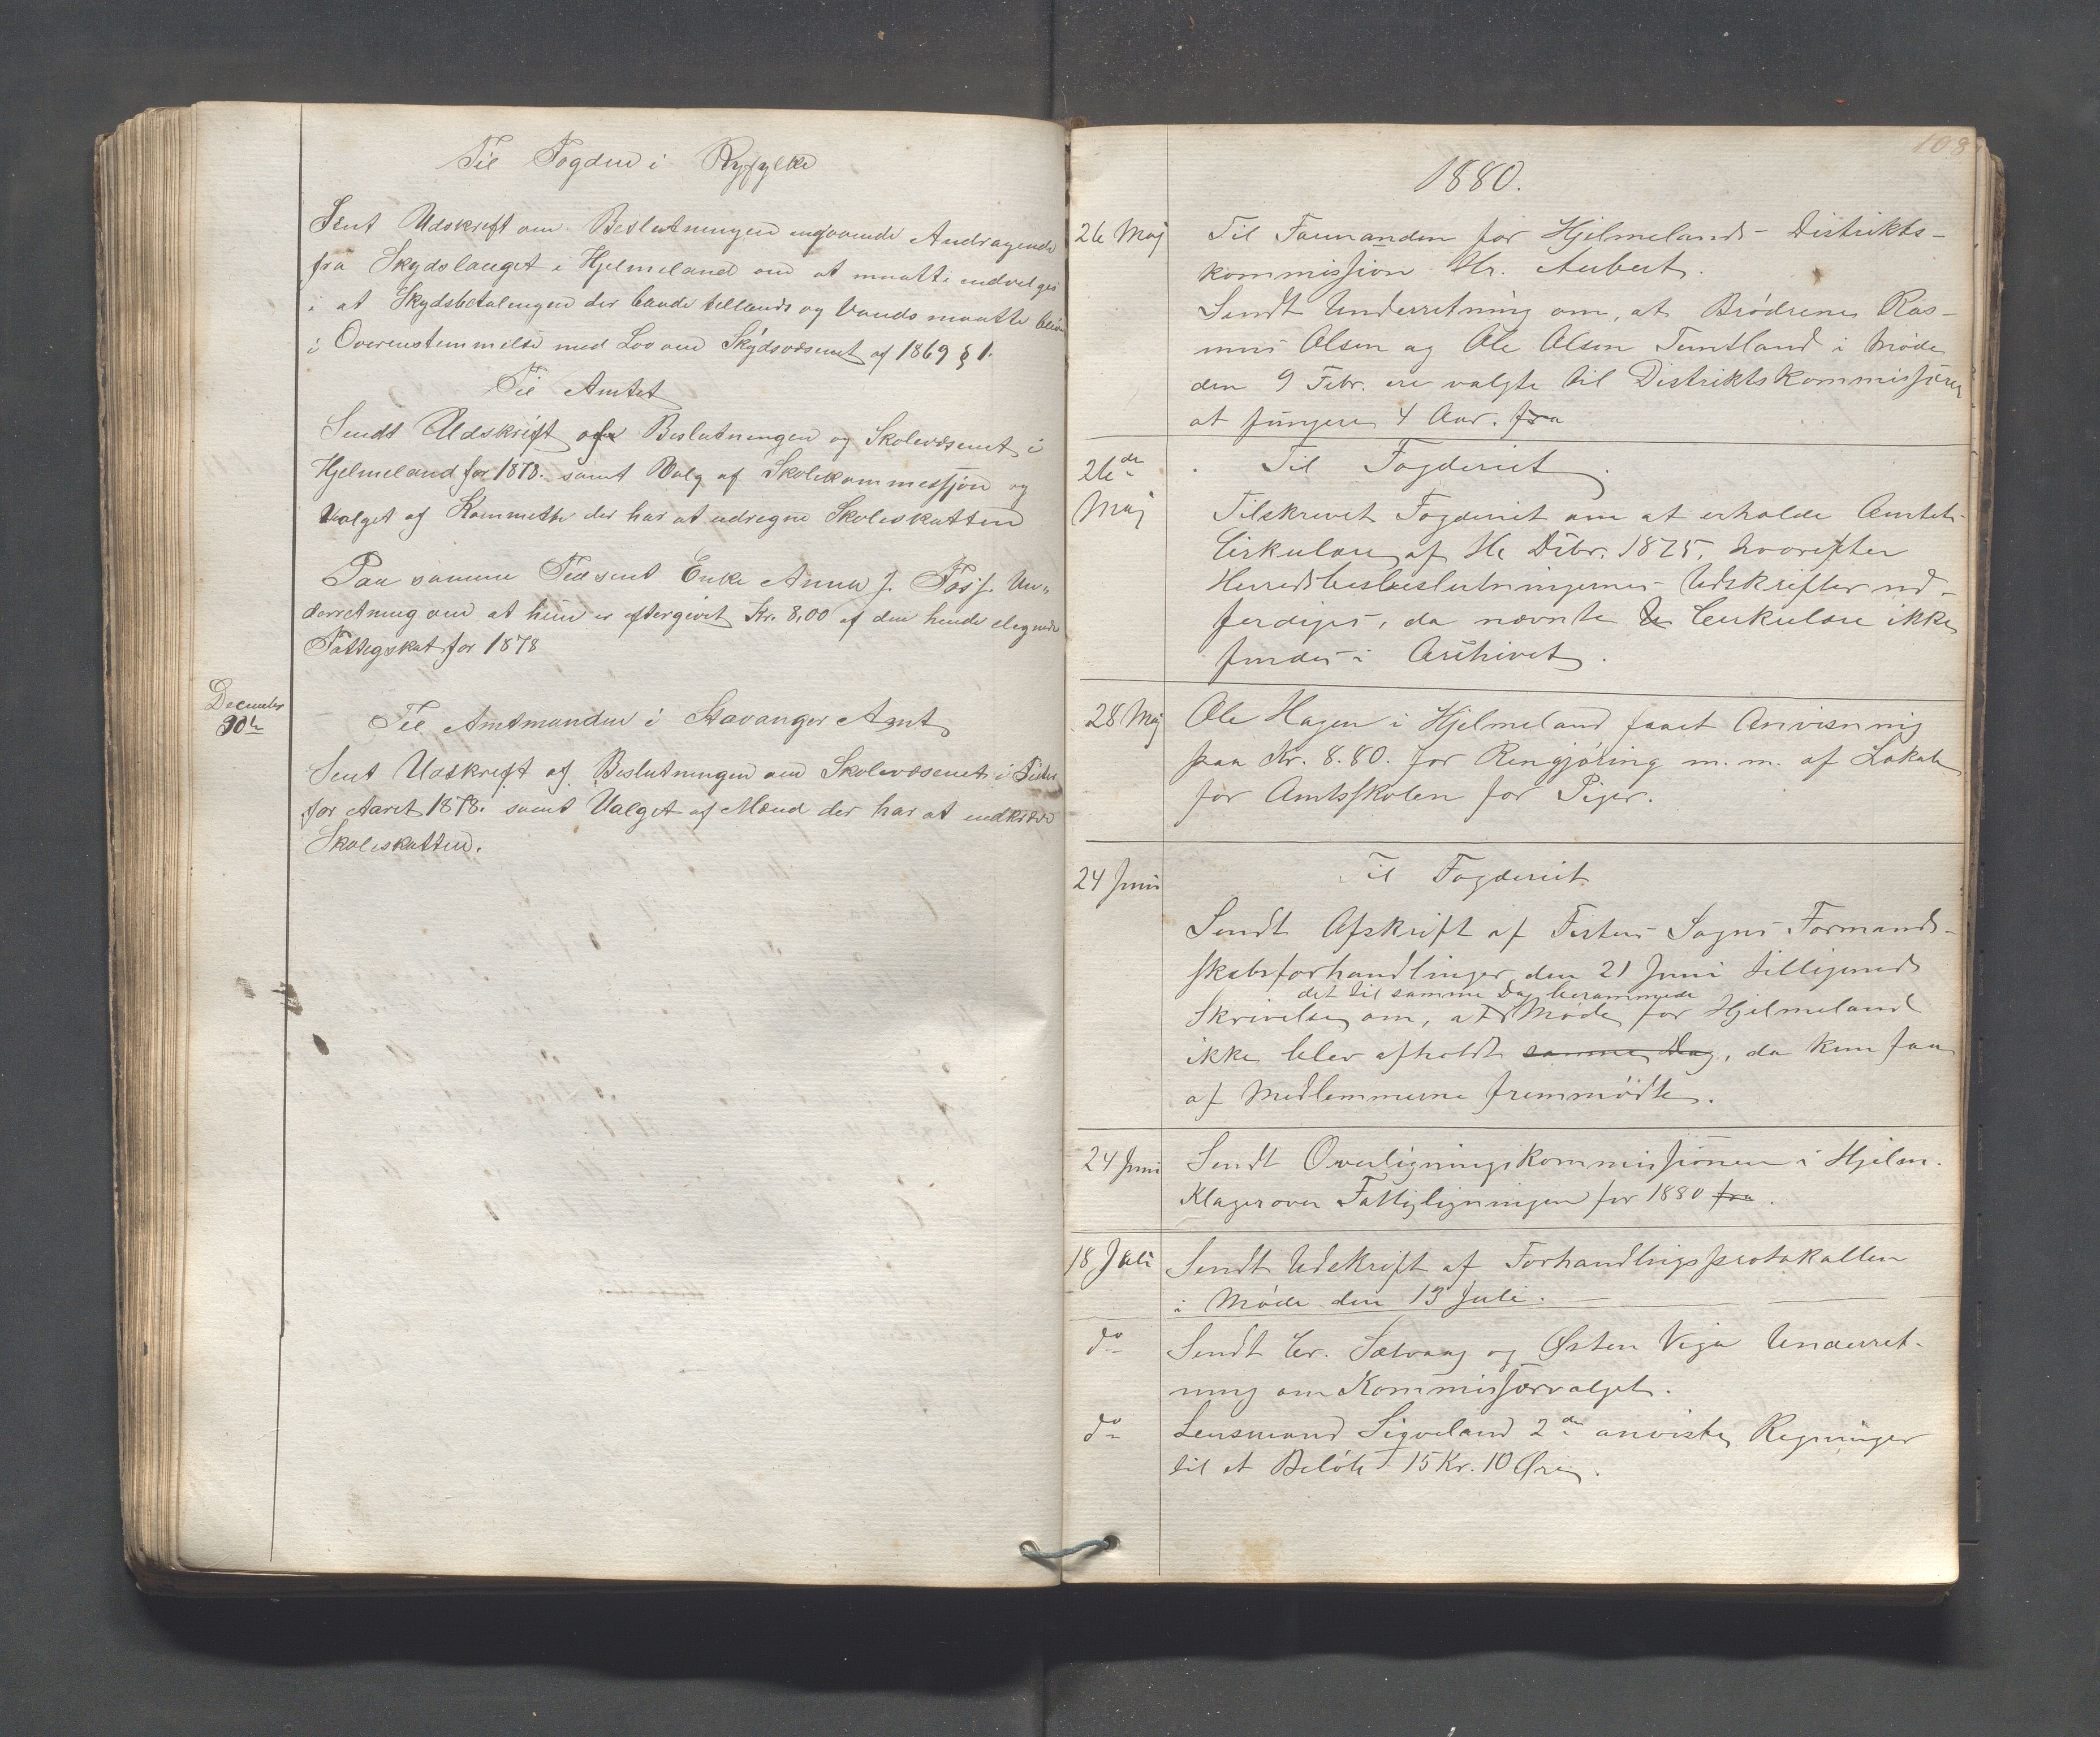 Til Fogden i Ryfylke
Sent Udskrift om Beslutningen angaaende Andragende
fra Skydslauget i Hjelmeland om at maatte
i at Skydsbetalingen der baade tillands og Vands maatte
i Overenstemmelse med Lov om Skydsvæsenet af 1869 § 1.
Til Amtet
Sendt Udskrift af Beslutningen og Skolevæsenet i
Hjelmeland for 1878. samt Valg af Skolekommessjon og
Valget af Kommette der har at udregne Skoleskatten
Paa samme Tid sent Enke Anna J. Un„
derretning om at hun er eftergivet Kr. 8,00 af den hende
Fattigskat for 1878
December
30te
Til Amtmanden i Stavanger Amt
Sent Udskrift af Beslutningen om Skolevæsenet i Fister
for Aaret 1878. samt Valget af Mænd der har at
Skoleskatten.
108
1880.
26 Maj
Til Formanden for Hjelmelands Distrikts-
kommission Hr. Aubert.
Sendt Underretning om, at Brødrene Ras-
mus Olsen og Ole Olson Tuntland i Møde
den 9 Febr. ere valgte til Distriktskommissærer
at fungere 4 Aar. fra
26de
Maj
Til Fogderiet.
Tilskrevet Fogderiet om at erholde Amtets
Cirkulære af 11te Dcbr. 1875, hvorefter
Herredsbesbeslutningernes Udskrifter ud-
ferdiges, da nævnte Cirkulære ikke
findes i Arkivet.
28 Maj
Ole Hagen i Hjelmeland faaet Anvisning
paa Kr. 8.80. for Rengjøring m. m. af Lokale
for Amtsskolen for Piger.
24 Juni
Til Fogderiet
Sendt Afskrift af Fisters Sogns Formand-
skabsforhandlinger den 21 Juni tilligemed
det til samme Dag berammede
Skrivelse om, at Møde for Hjelmeland
ikke blev afholdt samme Dag, da kun faa
af Medlemmerne fremmødte.
24 Juni
Sendt Overligningskommissionen i Hjelm.
Klager over Fattigligningen for 1880 fra.
18 Juli
Sendt Udskrift af Forhandlingsprotokollen
i Møde den 13 Juli.
do
Sendt Chr. Sætvaag og Østen Viga Underret-
ning om Kommissærvalget.
do
Lensmand Sigveland 2de anviste Regninger
til et Beløb 15 Kr. 10 Øre.